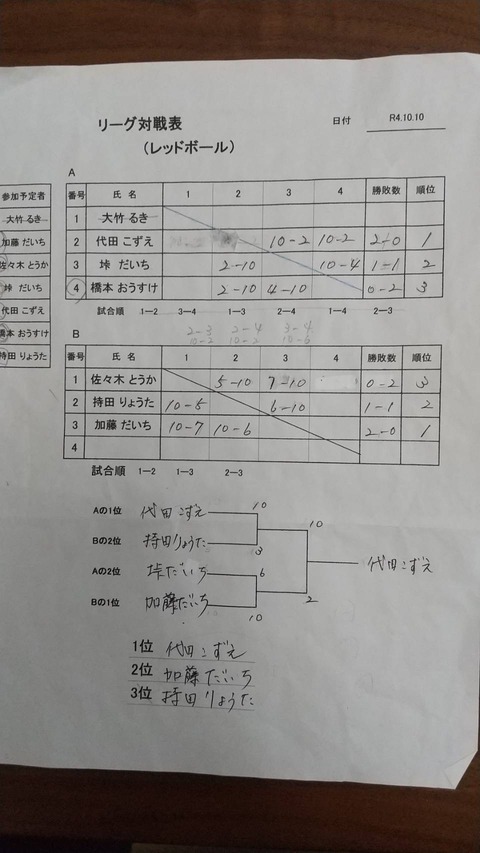 リーグ対戦表
（レッドボール）
日付 R4.10.10
参加予定者
大竹 るき
加藤 だいち
佐々木 とうか
垰 だいち
代田 こずえ
橋本 おうすけ
持田 りょうた
A
番号 氏 名 1 2 3 4 勝敗数 順位
1 大竹 るき
2 代田 こずえ 10-2 10-2 2-0 1
3 垰 だいち 2-10 10-4 1-1 2
4 橋本 おうすけ 2-10 4-10 0-2 3
試合順 1―2 3―4 1―3 2―4 1―4 2―3
2-3 2-4 3-4
10-2 10-2
B
番号 氏 名 1 2 3 4 勝敗数 順位
1 佐々木 とうか 5-10 7-10 0-2 3
2 持田 りょうた 10-5 6-10 1-1 2
3 加藤 だいち 10-7 10-6 2-0 1
4
試合順 1―2 1―3 2―3
Aの1位 代田 こずえ 10
Bの2位 持田りょうた 3
Aの2位 垰だいち 6
Bの1位 加藤だいち 10
10
2
代田こずえ
1位 代田 こずえ
2位 加藤 だいち
3位 持田 りょうた